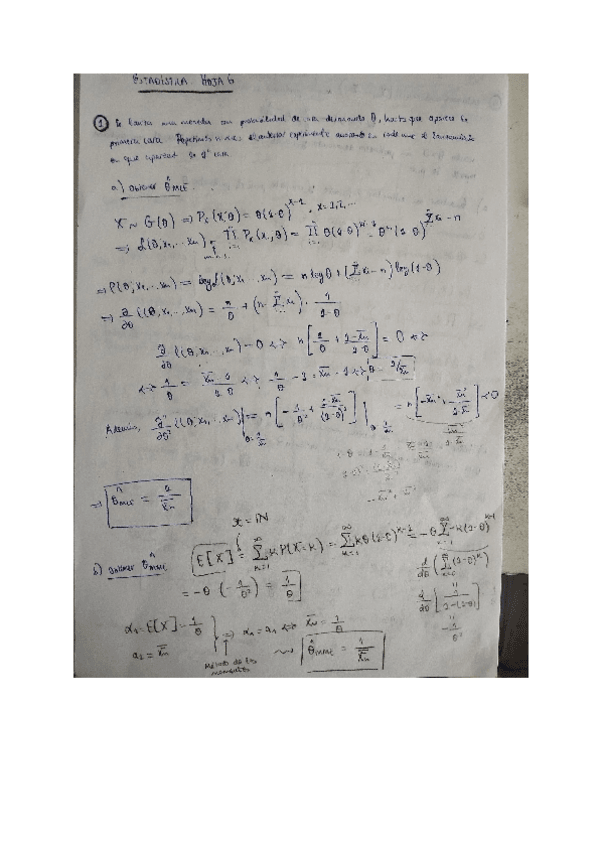 ESTADÍSTICA HOJA 6
① Se lanza una moneda con probabilidad de cara desconocida θ, hasta que aparece la
primera cara. Repetimos n veces el anterior experimento anotando en cada una el lanzamiento
en que apareció la 1ª cara
a) Obtener θ̂MLE
X ~ G(θ) ⇒ Pθ(X=x) = θ(1-θ)^{x-1}, x=1,2,...
⇒ L(θ; x₁...xₙ) = ∏ Pθ(xᵢ, θ) = ∏ θ(1-θ)^{xᵢ-1} = θⁿ(1-θ)^{Σxᵢ-n}
⇒ ℓ(θ; x₁...xₙ) = log L(θ; x₁...xₙ) = n log θ + (Σxᵢ - n) log(1-θ)
⇒ ∂/∂θ ℓ(θ, x₁...xₙ) = n/θ + (n - Σxᵢ) · 1/(1-θ)
∂/∂θ ℓ(θ, x₁...xₙ) = 0 ⇔ n[1/θ + (1-x̄ₙ)/(1-θ)] = 0 ⇔
⇔ 1/θ = (x̄ₙ-1)/(1-θ) ⇔ 1/θ - 1 = x̄ₙ - 1 ⇔ θ = 1/x̄ₙ
Además, ∂²/∂θ² ℓ(θ, x₁...xₙ)|θ=1/x̄ₙ = n[-1/θ² + (1-x̄ₙ)/(1-θ)²]|θ=1/x̄ₙ < 0
⇒ θ̂MLE = 1/x̄ₙ
x = ℕ
b) Obtener θ̂MME
E[X] = Σ k P(X=k) = Σ kθ(1-θ)^{k-1} = -θ Σ -k(1-θ)^{k-1}
d/dθ (Σ (1-θ)^k)
= -θ(-1/θ²) = 1/θ
d/dθ (1/(1-(1-θ)))
-1/θ²
α₁ = E[X] = 1/θ
a₁ = x̄ₙ
⇒ α₁ = a₁ ⇔ x̄ₙ = 1/θ
Método de los
momentos
⇝ θ̂MME = 1/x̄ₙ